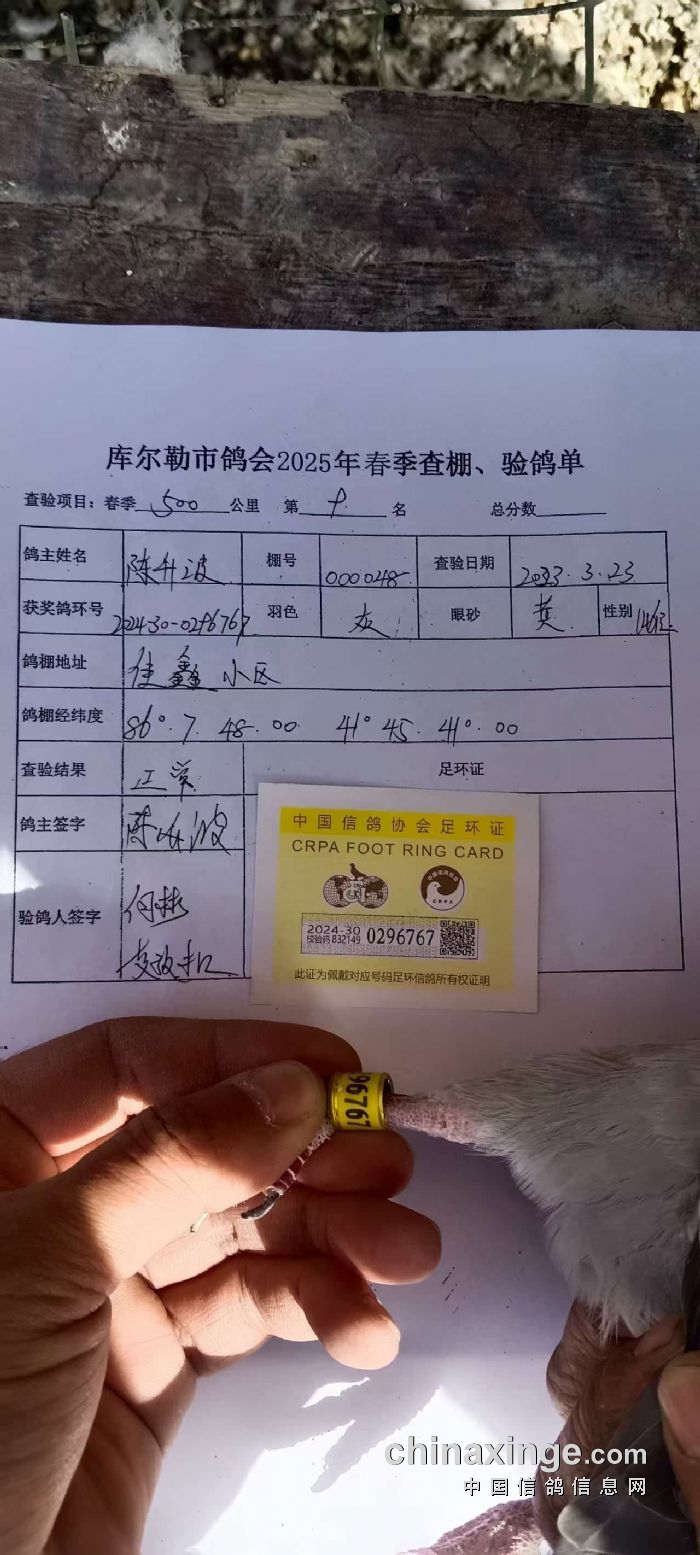 库尔勒市鸽会2025年春季查棚、验鸽单
查验项目：春季 500 公里 第 名 总分数
鸽主姓名 陈升波 棚号 000048 查验日期 3.23
获奖鸽环号 2024-30-0296767 羽色 灰 眼砂 黄 性别
鸽棚地址 佳鑫小区
鸽棚经纬度 86°.7.48.00 41°45.41°.00
查验结果 正常 足环证
鸽主签字
验鸽人签字 何彬
中国信鸽协会足环证
CRPA FOOT RING CARD
CRPA
2024-30
校验码 832149 0296767
此证为佩戴对应号码足环信鸽所有权证明
96767
chinaxinge.com
中国信鸽信息网